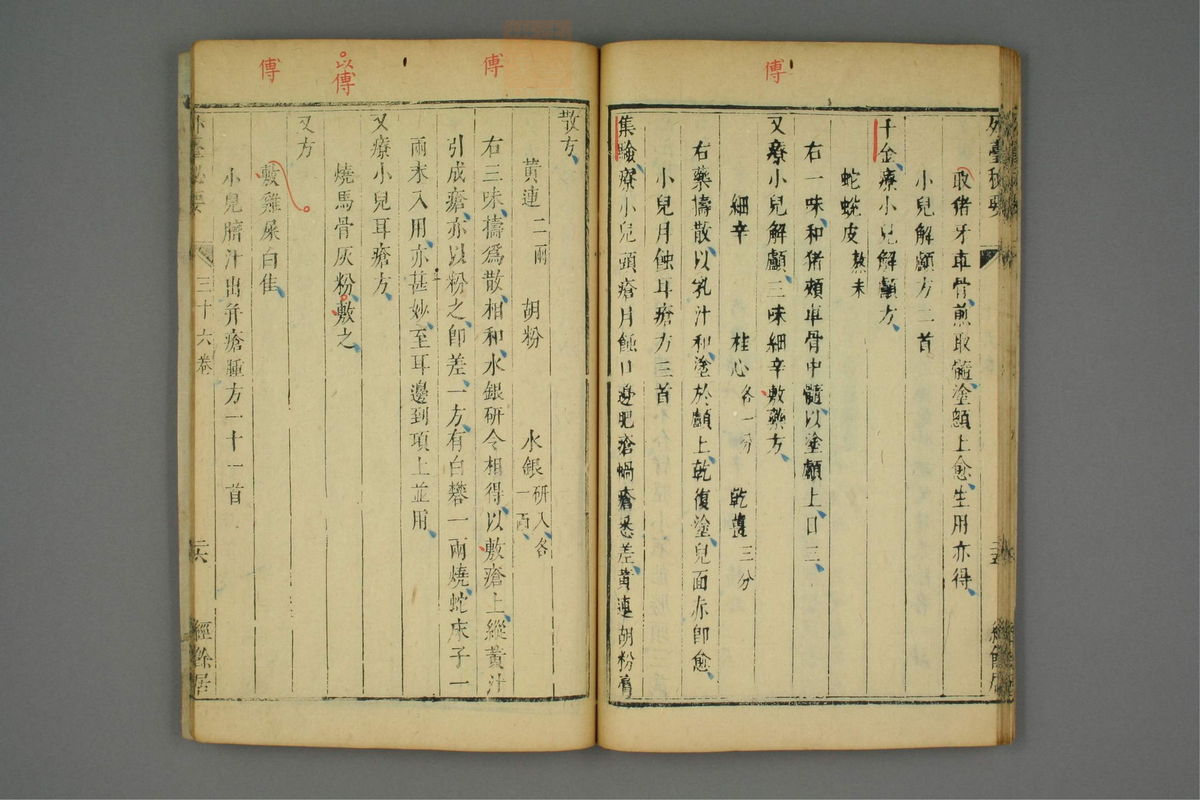 傅
外臺秘要
取猪牙車骨煎取髓塗顖上愈生用亦得
小兒解顱方二首
千金療小兒解顱方
蛇蛻皮 熬末
右一味和猪頰車骨中髓以塗顱上日三
又療小兒解顱三味細辛敷藥方
細辛 桂心 各一分 乾薑 三分
右藥擣散以乳汁和塗於顱上乾復塗兒面赤即愈
小兒月蝕耳瘡方三首
集驗療小兒頭瘡月蝕口邊肥瘡蝸瘡悉差黃連胡粉膏
傅
以傅
傅
散方
黃連 二兩 胡粉 水銀 研入各一兩
右三味擣爲散相和水銀研令相得以敷瘡上縱黃汁
引成瘡亦以粉之即差一方有白礬一兩燒蛇床子一
兩末入用亦甚妙至耳邊到項上並用
又療小兒耳瘡方
燒馬骨灰粉敷之
又方
敷雞屎白佳
小兒臍汁出并瘡腫方一十一首
外臺秘要 三十六卷 二六 經餘居